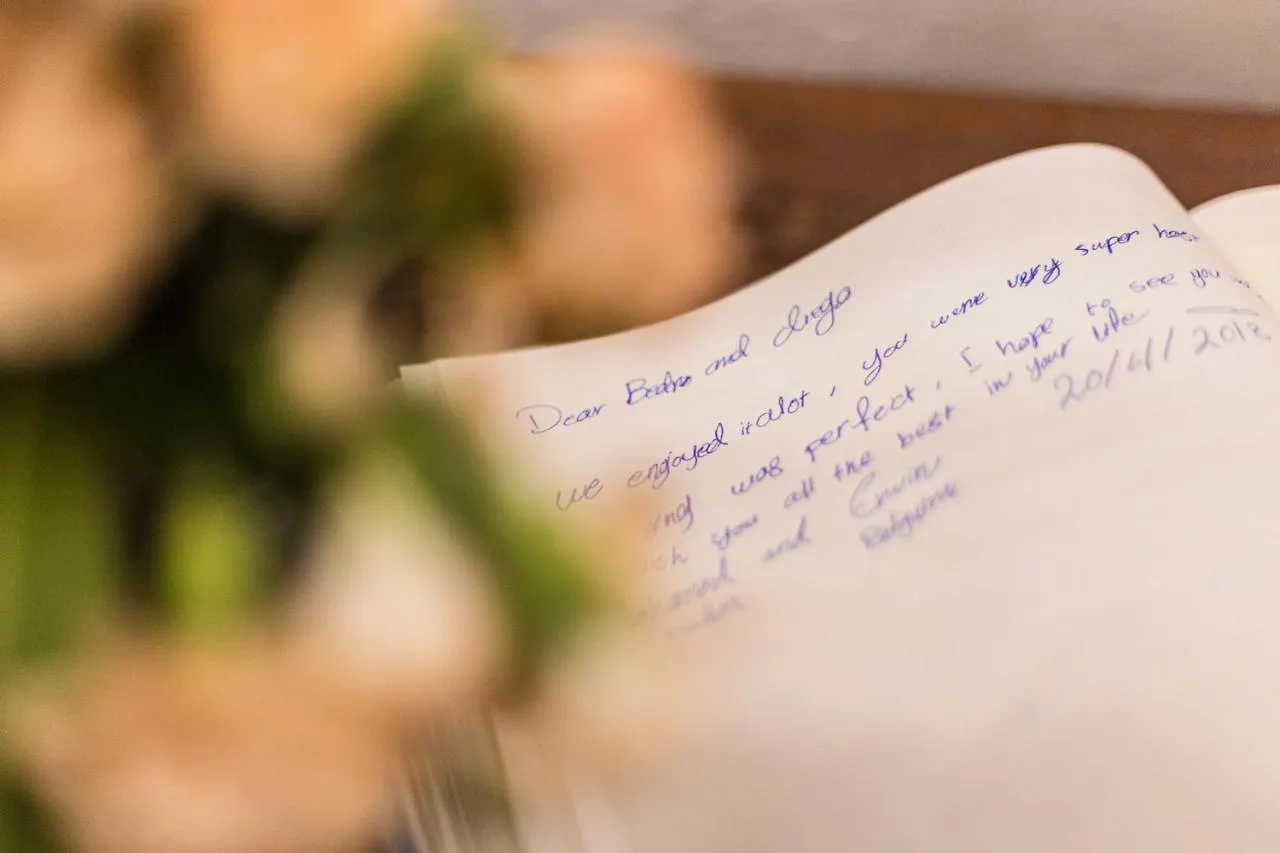 Dear Bedro and diego
we engoyed it alot , you were very super host
was perfect , I hope to see you
you all the best in your life
and Erwin 20/4/2018